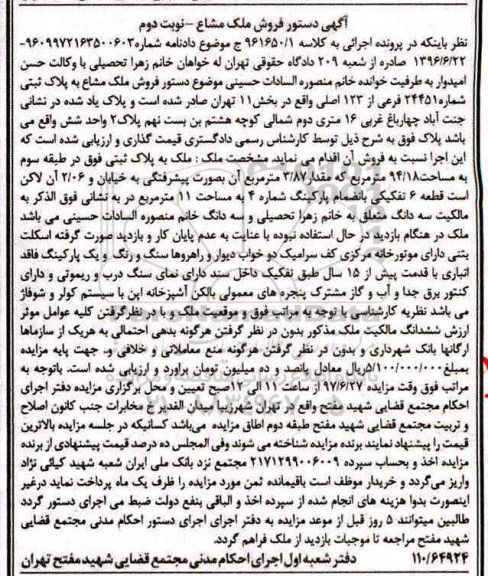 آگهی دستور فروش ملک مشاع -نوبت دوم
نظر باینکه در پرونده اجرائی به کلاسه ۹۶۱۶۵۰/۱ ج موضوع دادنامه شماره۹۶۰۹۹۷۲۱۶۳۵۰۰۶۰۳-
۱۳۹۶/۶/۲۲ صادره از شعبه ۲۰۹ دادگاه حقوقی تهران له خواهان خانم زهرا تحصیلی با وکالت حسن
امیدوار به طرفیت خوانده خانم منصوره السادات حسینی موضوع دستور فروش ملک مشاع به پلاک ثبتی
شماره۲۴۴۵۱ فرعی از ۱۲۳ اصلی واقع در بخش۱۱ تهران صادر شده است و پلاک یاد شده در نشانی
جنت آباد چهارباغ غربی ۱۶ متری دوم شمالی کوچه هشتم بن بست نهم پلاک۲ واحد شش واقع می
باشد پلاک فوق به شرح ذیل توسط کارشناس رسمی دادگستری قیمت گذاری و ارزیابی شده است که
این اجرا نسبت به فروش آن اقدام می نماید مشخصت ملک : ملک به پلاک ثبتی فوق در طبقه سوم
به مساحت۹۴/۱۸ مترمربع که مقدار۳/۸۷ مترمربع آن بصورت پیشرفتگی به خیابان و ۲/۰۶ آن لاکن
است قطعه ۶ تفکیکی بانضمام پارکینگ شماره ۴ به مساحت ۱۱ مترمربع در به نشانی فوق الذکر به
مالکیت سه دانگ متعلق به خانم زهرا تحصیلی و سه دانگ خانم منصوره السادات حسینی می باشد
ملک در هنگام بازدید در حال استفاده نبوده با عنایت به عدم پایان کار و بازدید صورت گرفته اسکلت
بتنی دارای موتورخانه مرکزی کف سرامیک دو خواب دیوار و راهروها سنگ و رنگ و یک پارکینگ فاقد
انباری با قدمت پیش از ۱۵ سال طبق تفکیک داخل سند دارای نمای سنگ درب و ریموتی و دارای
کنتور برق جدا و آب و گاز مشترک پنجره های معمولی بالکن آشپزخانه اپن با سیستم کولر و شوفاژ
می باشد نظریه کارشناسی با توجه به مراتب فوق و موقعیت ملک و با در نظرگرفتن کلیه عوامل موثر
ارزش ششدانگ مالکیت ملک مذکور بدون در نظر گرفتن هرگونه بدهی احتمالی به هریک از سازماها
ارگانها بانک شهرداری و بدون در نظر گرفتن هرگونه منع معاملاتی و خلافی و.. جهت پایه مزایده
بمبلغ۵/۱۰۰/۰۰۰/۰۰۰ریال معادل پانصد و ده میلیون تومان براورد و ارزیابی شده است. باتوجه به
مراتب فوق وقت مزایده ۹۷/۶/۲۷ از ساعت ۱۱ الی ۱۲صبح تعیین و محل برگزاری مزایده دفتر اجرای
احکام مجتمع قضایی شهید مفتح واقع در تهران شهرزیبا میدان الغدیرخ مخابرات جنب کانون اصلاح
و تربیت مجتمع قضایی شهید مفتح طبقه دوم اطاق مزایده می‌باشد کسانیکه در جلسه مزایده بالاترین
قیمت را پیشنهاد نمایند برنده مزایده شناخته می شوند وفی المجلس ده درصد قیمت پیشنهادی از برنده
مزایده اخذ و بحساب سپرده ۲۱۷۱۲۹۹۰۰۶۰۰۹ مجتمع نزد بانک ملی ایران شعبه شهید کیائی نژاد
واریز می‌گردد و خریدار موظف است باقیمانده ثمن مورد مزایده را ظرف یک ماه پرداخت نماید درغیر
اینصورت بدوا هزینه های انجام شده از سپرده اخذ و الباقی بنفع دولت ضبط می اجرای دستور گردد
طالبین میتوانند ۵ روز قبل از موعد مزایده به دفتر اجرای اجرای دستور احکام مدنی مجتمع قضایی
شهید مفتح مراجعه تا موجبات بازدید از ملک فراهم گردد.
۱۱۰/۶۴۹۲۴ دفتر شعبه اول اجرای احکام مدنی مجتمع قضایی شهید مفتح تهران